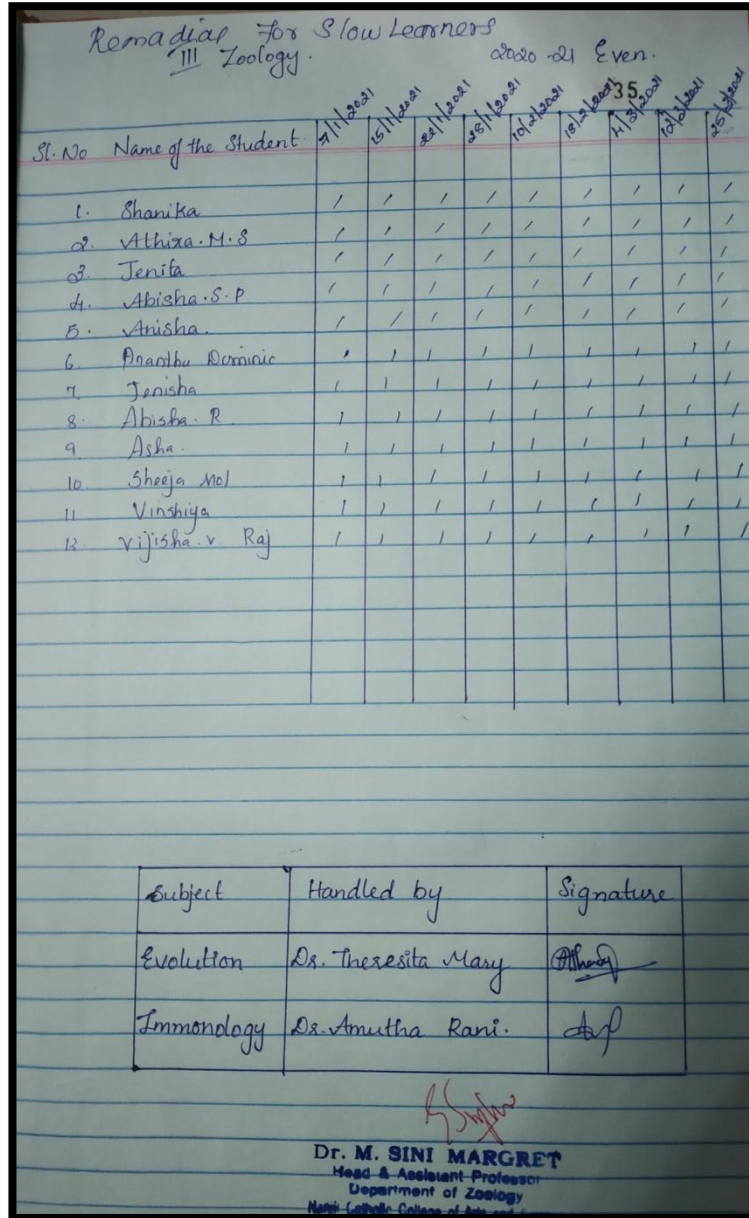 Remadial For Slow Learners
III Zoology. 2020-21 Even.
35
Sl. No Name of the Student 7/1/2021 15/1/2021 22/1/2021 28/1/2021 10/2/2021 18/2/2021 4/3/2021 12/3/2021 25/3/2021
1. Shanika / / / / / / / / /
2. Athira. M. S / / / / / / / / /
3. Jenita / / / / / / / / /
4. Abisha. S. P / / / / / / / / /
5. Anisha. / / / / / / / / /
6. Ananthu Dominic / / / / / / / / /
7. Jenisha / / / / / / / / /
8. Abisha. R / / / / / / / / /
9 Asha. / / / / / / / / /
10. Sheeja Mol / / / / / / / / /
11 Vinshiya / / / / / / / / /
12. Vijisha. v. Raj / / / / / / / / /
Subject Handled by Signature
Evolution Dr. Theresita Mary
Immonology Dr. Amutha Rani.
Dr. M. SINI MARGRET
Head & Assistant Professor
Department of Zoology
Catholic College of Arts and